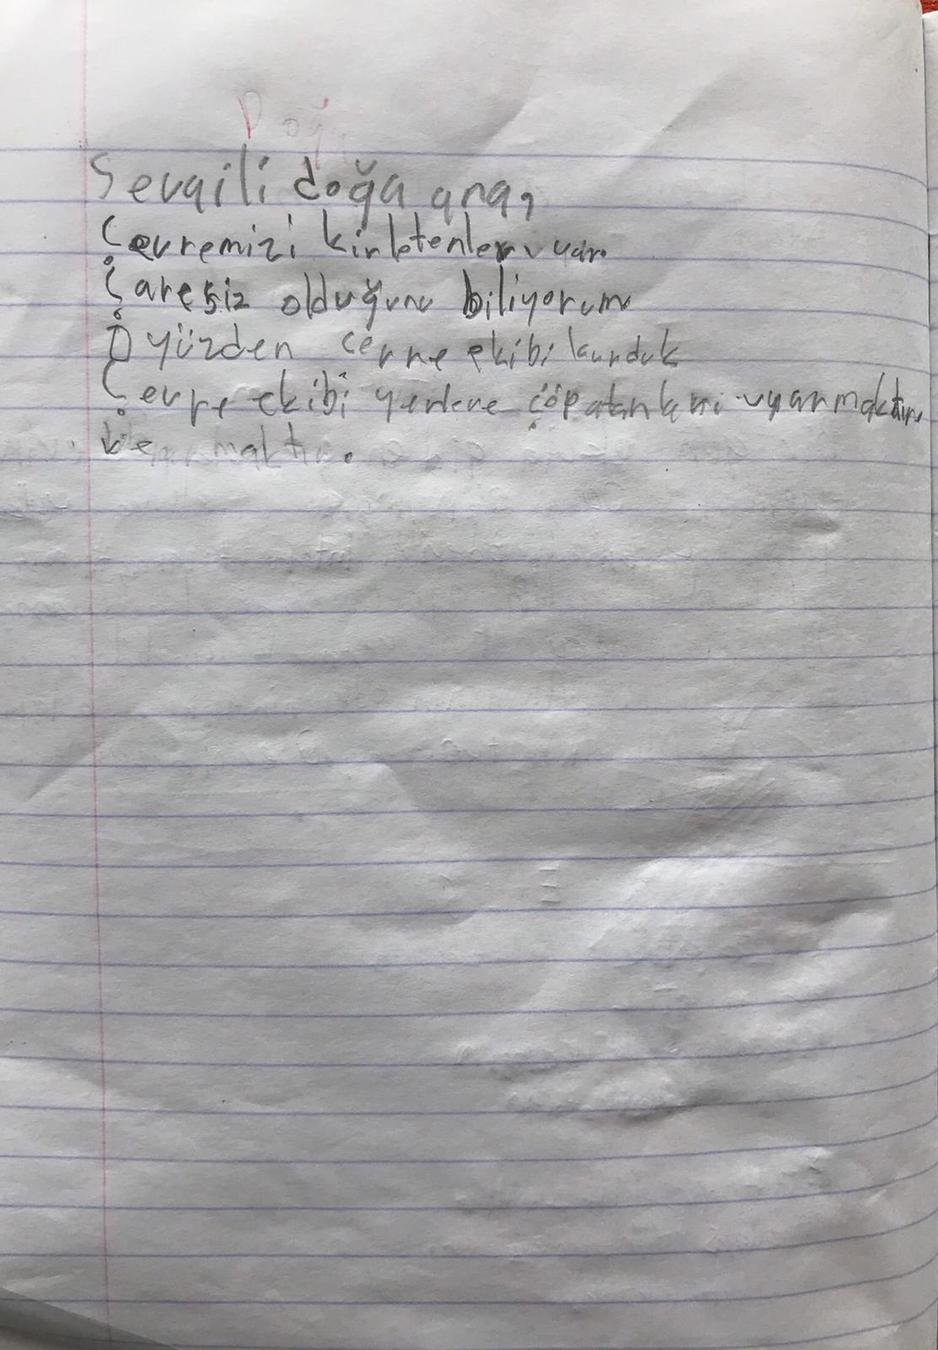 Doğa
Sevgili doğa ana,
Çevremizi kirletenler var.
Çaresiz olduğunu biliyorum
O yüzden çevre ekibi kurduk
Çevre ekibi yerlere çöp atanları uyarmaktır.